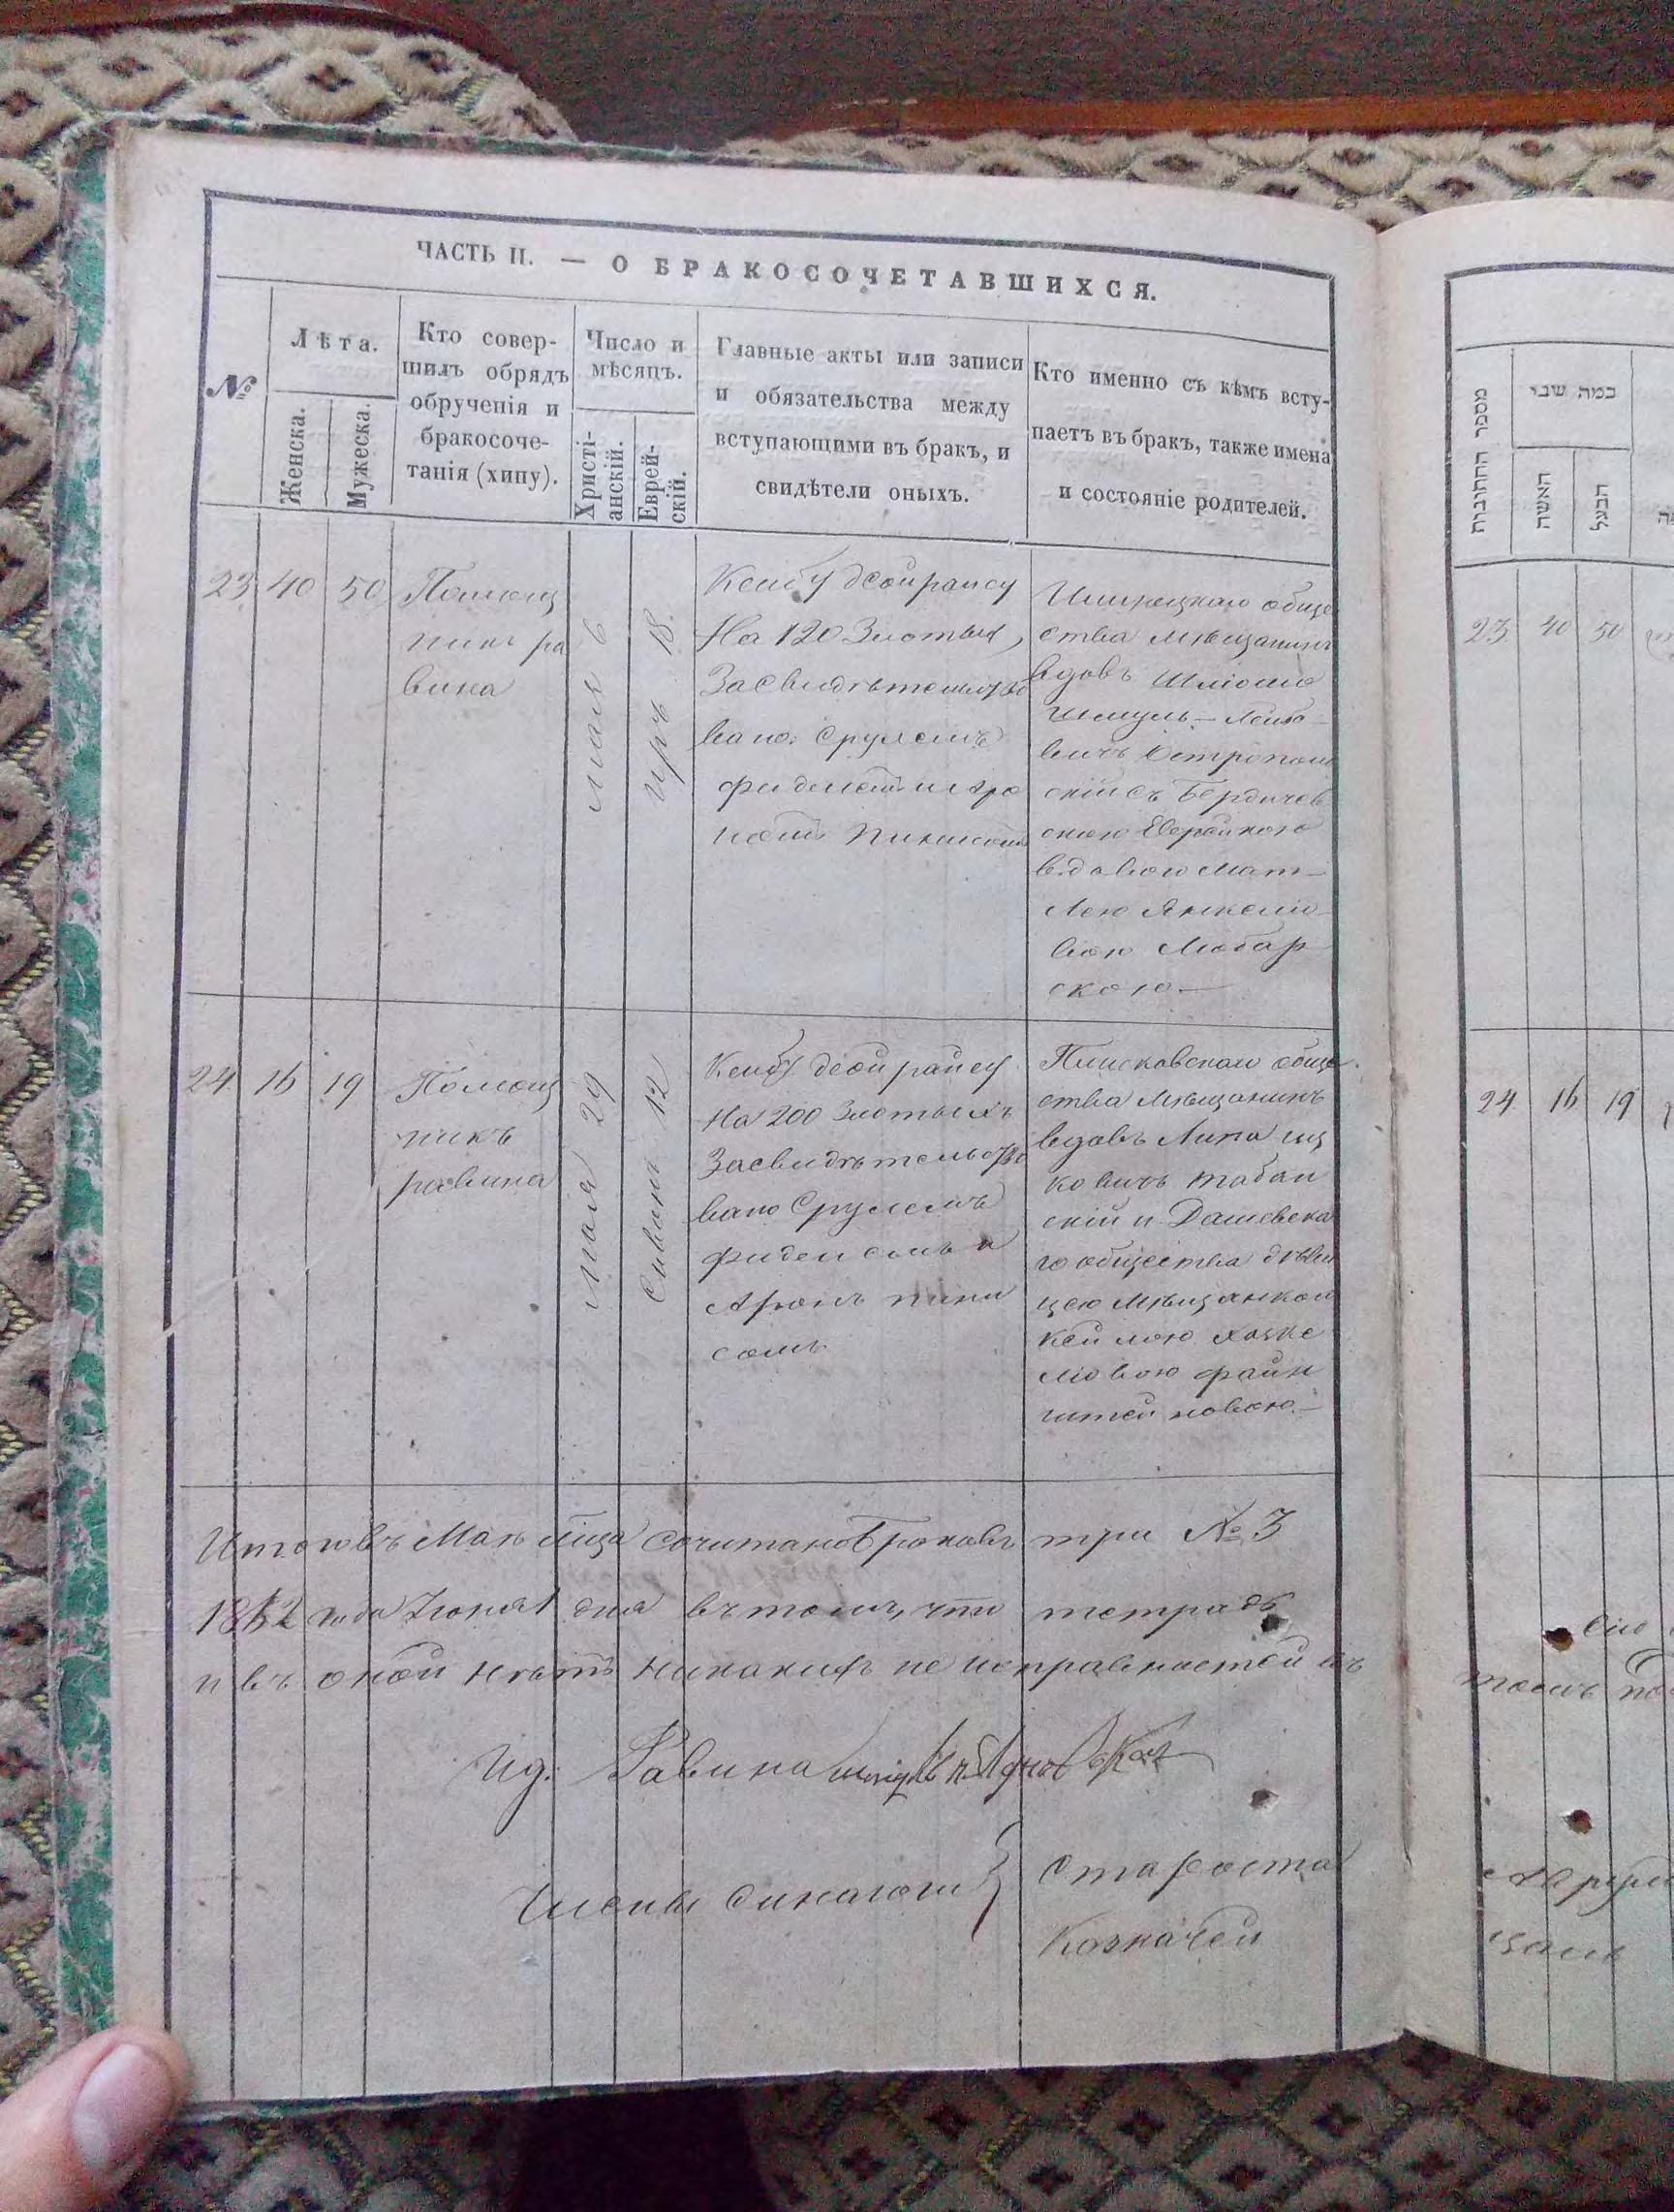 ЧАСТЬ II. — О БРАКОСОЧЕТАВШИХСЯ.
№
Лѣта.
Женска.
Мужеска.
Кто совер-
шилъ обрядъ
обрученія и
бракосоче-
танія (хипу).
Число и
мѣсяцъ.
Христі-
анскій.
Еврей-
скій.
Главные акты или записи
и обязательства между
вступающими въ бракъ, и
свидѣтели оныхъ.
Кто именно съ кѣмъ всту-
паетъ въ бракъ, также имена
и состояніе родителей.
23
40
50
Помощ
никъ ра
вина
мая 6
иръ 18
На 120 Злотых,
Засвидѣтельство
вано: Срулемъ
общe
ства мѣщанинъ
вдовъ Шлiомо
Шмуль - Лейбо
вичъ Острополь
скій съ Бердичев
скою Еврейкою
вдовою Мат-
лею Янкелiо-
вою Любар
скою —
24
16
19
Помощ
никъ
равина
мая 29
Сивонъ 12
На 200 Злотыхъ
Засвидѣтельство
вано Срулемъ
фиделемъ и
Арономъ пини
сомъ
обще
ства мѣщанинъ
вдовъ Липа иц
ковичъ табан
скій и Дашевска
го общества дѣви
цею мѣщанкою
Кейлою Хаске
лiовою файн
штейновою. —
Итого въ Маѣ мѣца сочитано браковъ три № 3
1862 года Iюня 1 дня въ томъ, что тетрадь
и въ оной нѣтъ никакихъ не исправностей въ
Ид. Равина
Члены синагоги } Староста
Казначей
מספר החתונות
כמה שני
האשה
הבעל
23
40
50
24
16
19